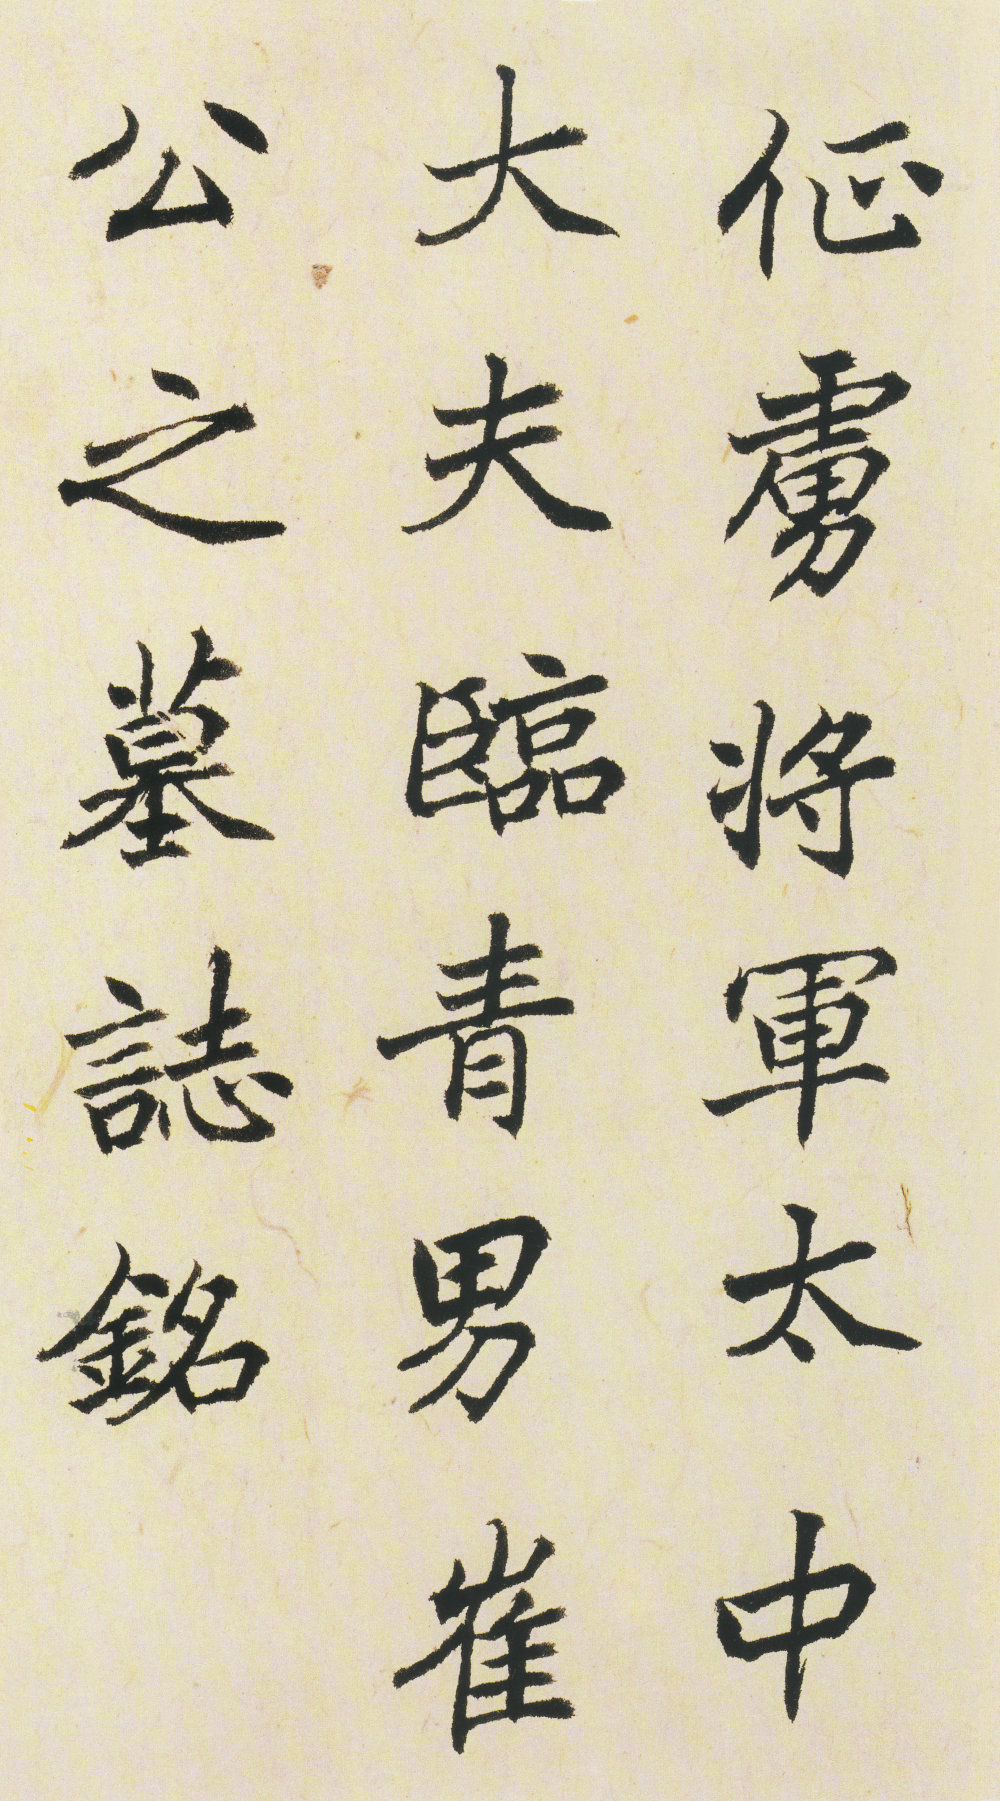 征虜将軍太中
大夫臨青男崔
公之墓誌銘